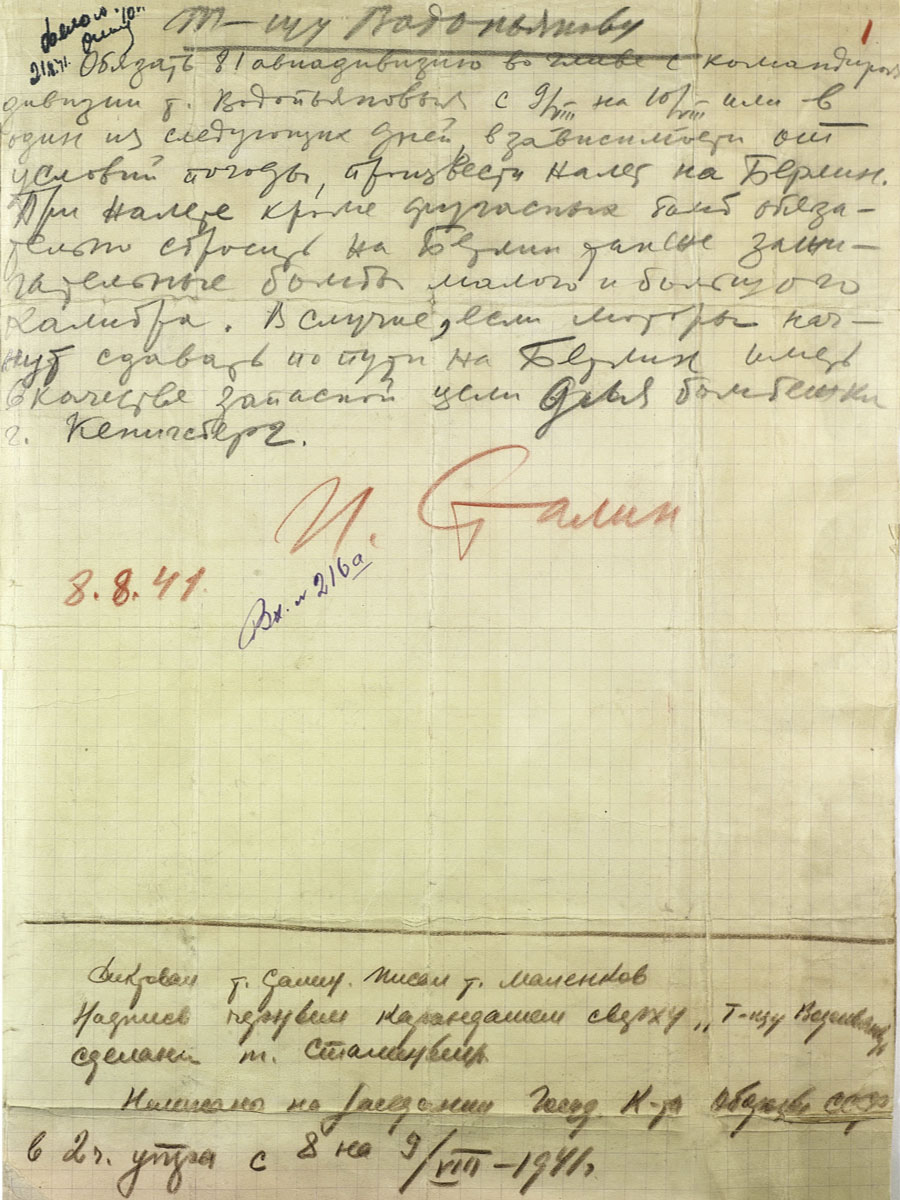 Т-щу Водопьянову
1
21/8.41.
Обязать 81 авиадивизию во главе с командиром
дивизии т. Водопьяновым с 9/VIII на 10/VIII или в
один из следующих дней, взависимости от
условий погоды, произвести налет на Берлин.
При налете кроме фугасных бомб обяза-
тельно сбросить на Берлин также зажи-
гательные бомбы малого и большого
калибра. В случае, если моторы нач-
нут сдавать по пути на Берлин иметь
в качестве запасной цели для бомбежки
г. Кенигсберг.
И. Сталин
8.8.41
Вх. № 216а
Диктовал т. Сталин. Писал т. Маленков
Надпись черным карандашом сверху „Т-щу Водопьянову
сделана т. Сталиным.
Написано на заседании Госуд. К-та Обороны СССР
в 2 ч. утра с 8 на 9/VIII-1941г.